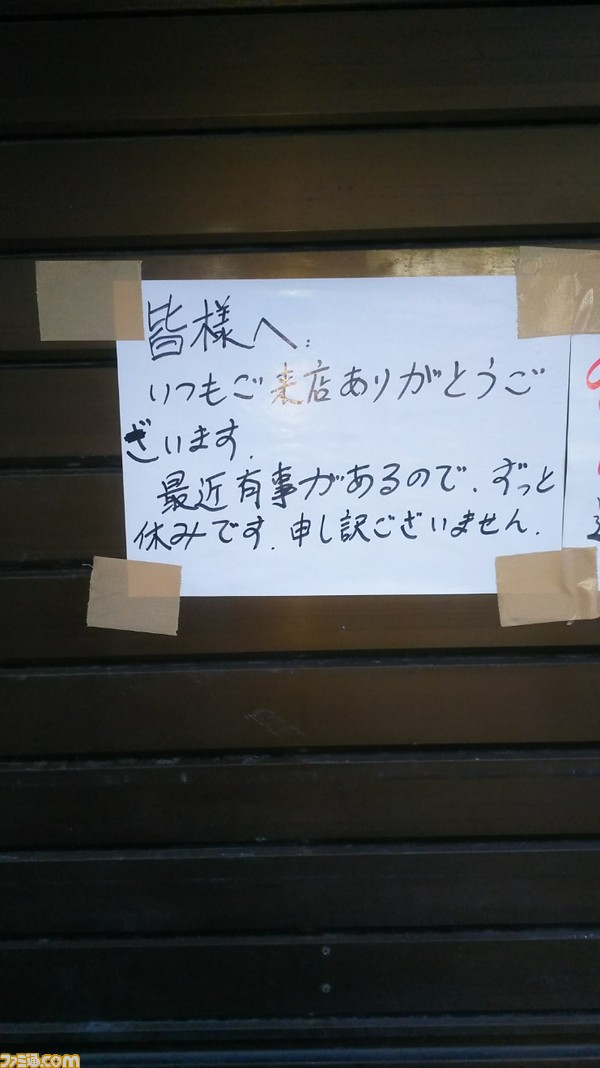 皆様へ:
いつもご来店ありがとうご
ざいます.
最近有事があるので、ずっと
休みです.申し訳ございません.
ファミ通.com